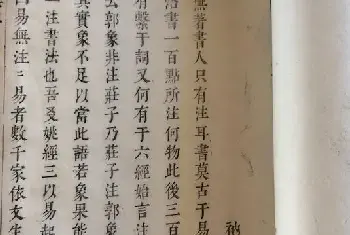 無著書人只有注耳書莫古于易
洛書一百點所注何物此後三百
有繫于詞又何有于六經始言注
公郭象非注莊子乃莊子注郭象
其實象不足以當此語若象果能
一注書法也吾爻姚經三以易起
四易無注二易者數千家依文生